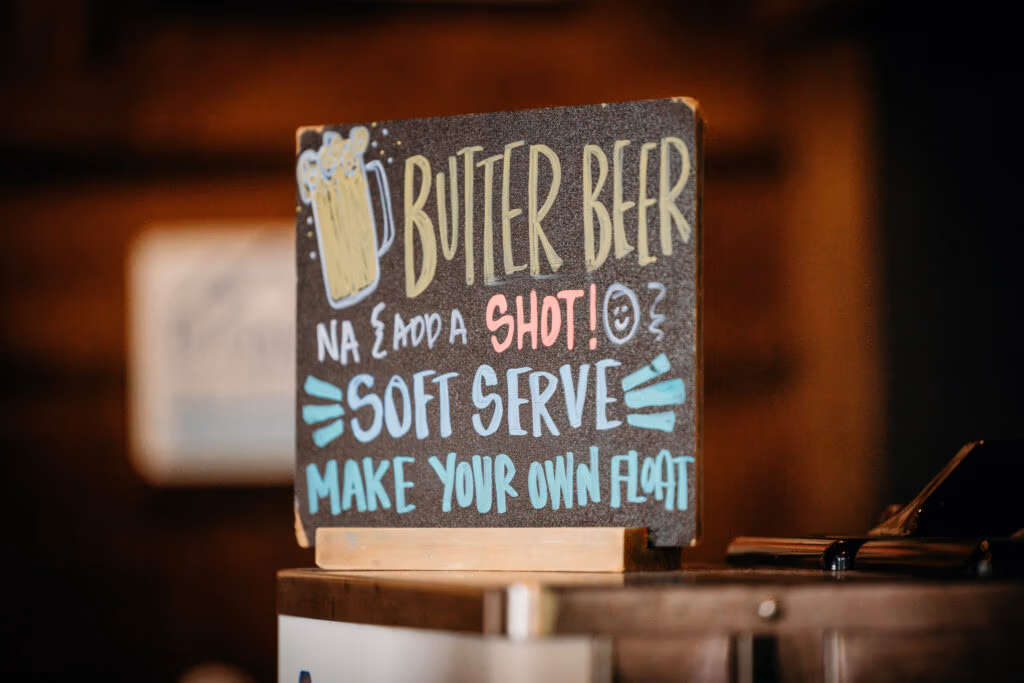 BUTTER BEER
NA & ADD A SHOT!
SOFT SERVE
MAKE YOUR OWN FLOAT